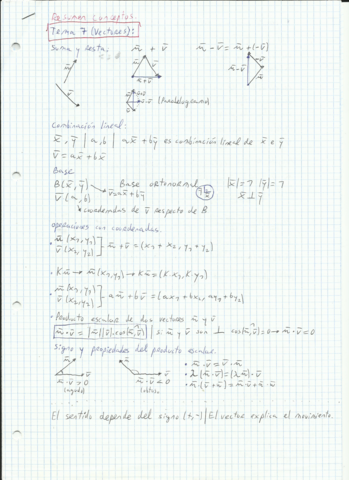 Resumen conceptos
Tema 7 (Vectores):
Suma y resta: m̄ + v̄   m̄ - v̄ = m̄ + (-v̄)
m̄   v̄   m̄+v̄   m̄-v̄
(Paralelogramo)
Combinación lineal:
x̄, ȳ | a, b | ax̄ + bȳ es combinación lineal de x̄ e ȳ
v̄ = ax̄ + bx̄
Base
B(x̄, ȳ)   Base ortonormal   |x̄| = 1 |ȳ| = 1
v̄(a, b)   v̄ = ax̄ + bȳ   x̄ ⊥ ȳ
coordenadas de v̄ respecto de B
operaciones con coordenadas.
· m̄(x₁, y₁) v̄(x₂, y₂)] - m̄ + v̄ = (x₁ + x₂, y₁ + y₂)
· K m̄ → m̄(x₁, y₁) → K m̄ = (K x₁, K y₁)
· m̄(x₁, y₁) v̄(x₂, y₂)] - a m̄ + b v̄ = (ax₁ + bx₂, ay₁ + by₂)
· Producto escalar de dos vectores m̄ y v̄
m̄ · v̄ = |m̄| |v̄| · cos(m̄, v̄) | si m̄ y v̄ son ⊥ cos(m̄, v̄) = 0 → m̄ · v̄ = 0
Signo y propiedades del producto escalar.
m̄   v̄   m̄   v̄   · m̄ · v̄ = v̄ · m̄
m̄ · v̄ > 0   m̄ · v̄ < 0   · λ(m̄ · v̄) = (λ m̄) · v̄
(agudo)   (obtuso)   · m̄ · (v̄ + w̄) = m̄ · v̄ + m̄ · w̄
El sentido depende del signo (+, -) | El vector explica el movimiento.